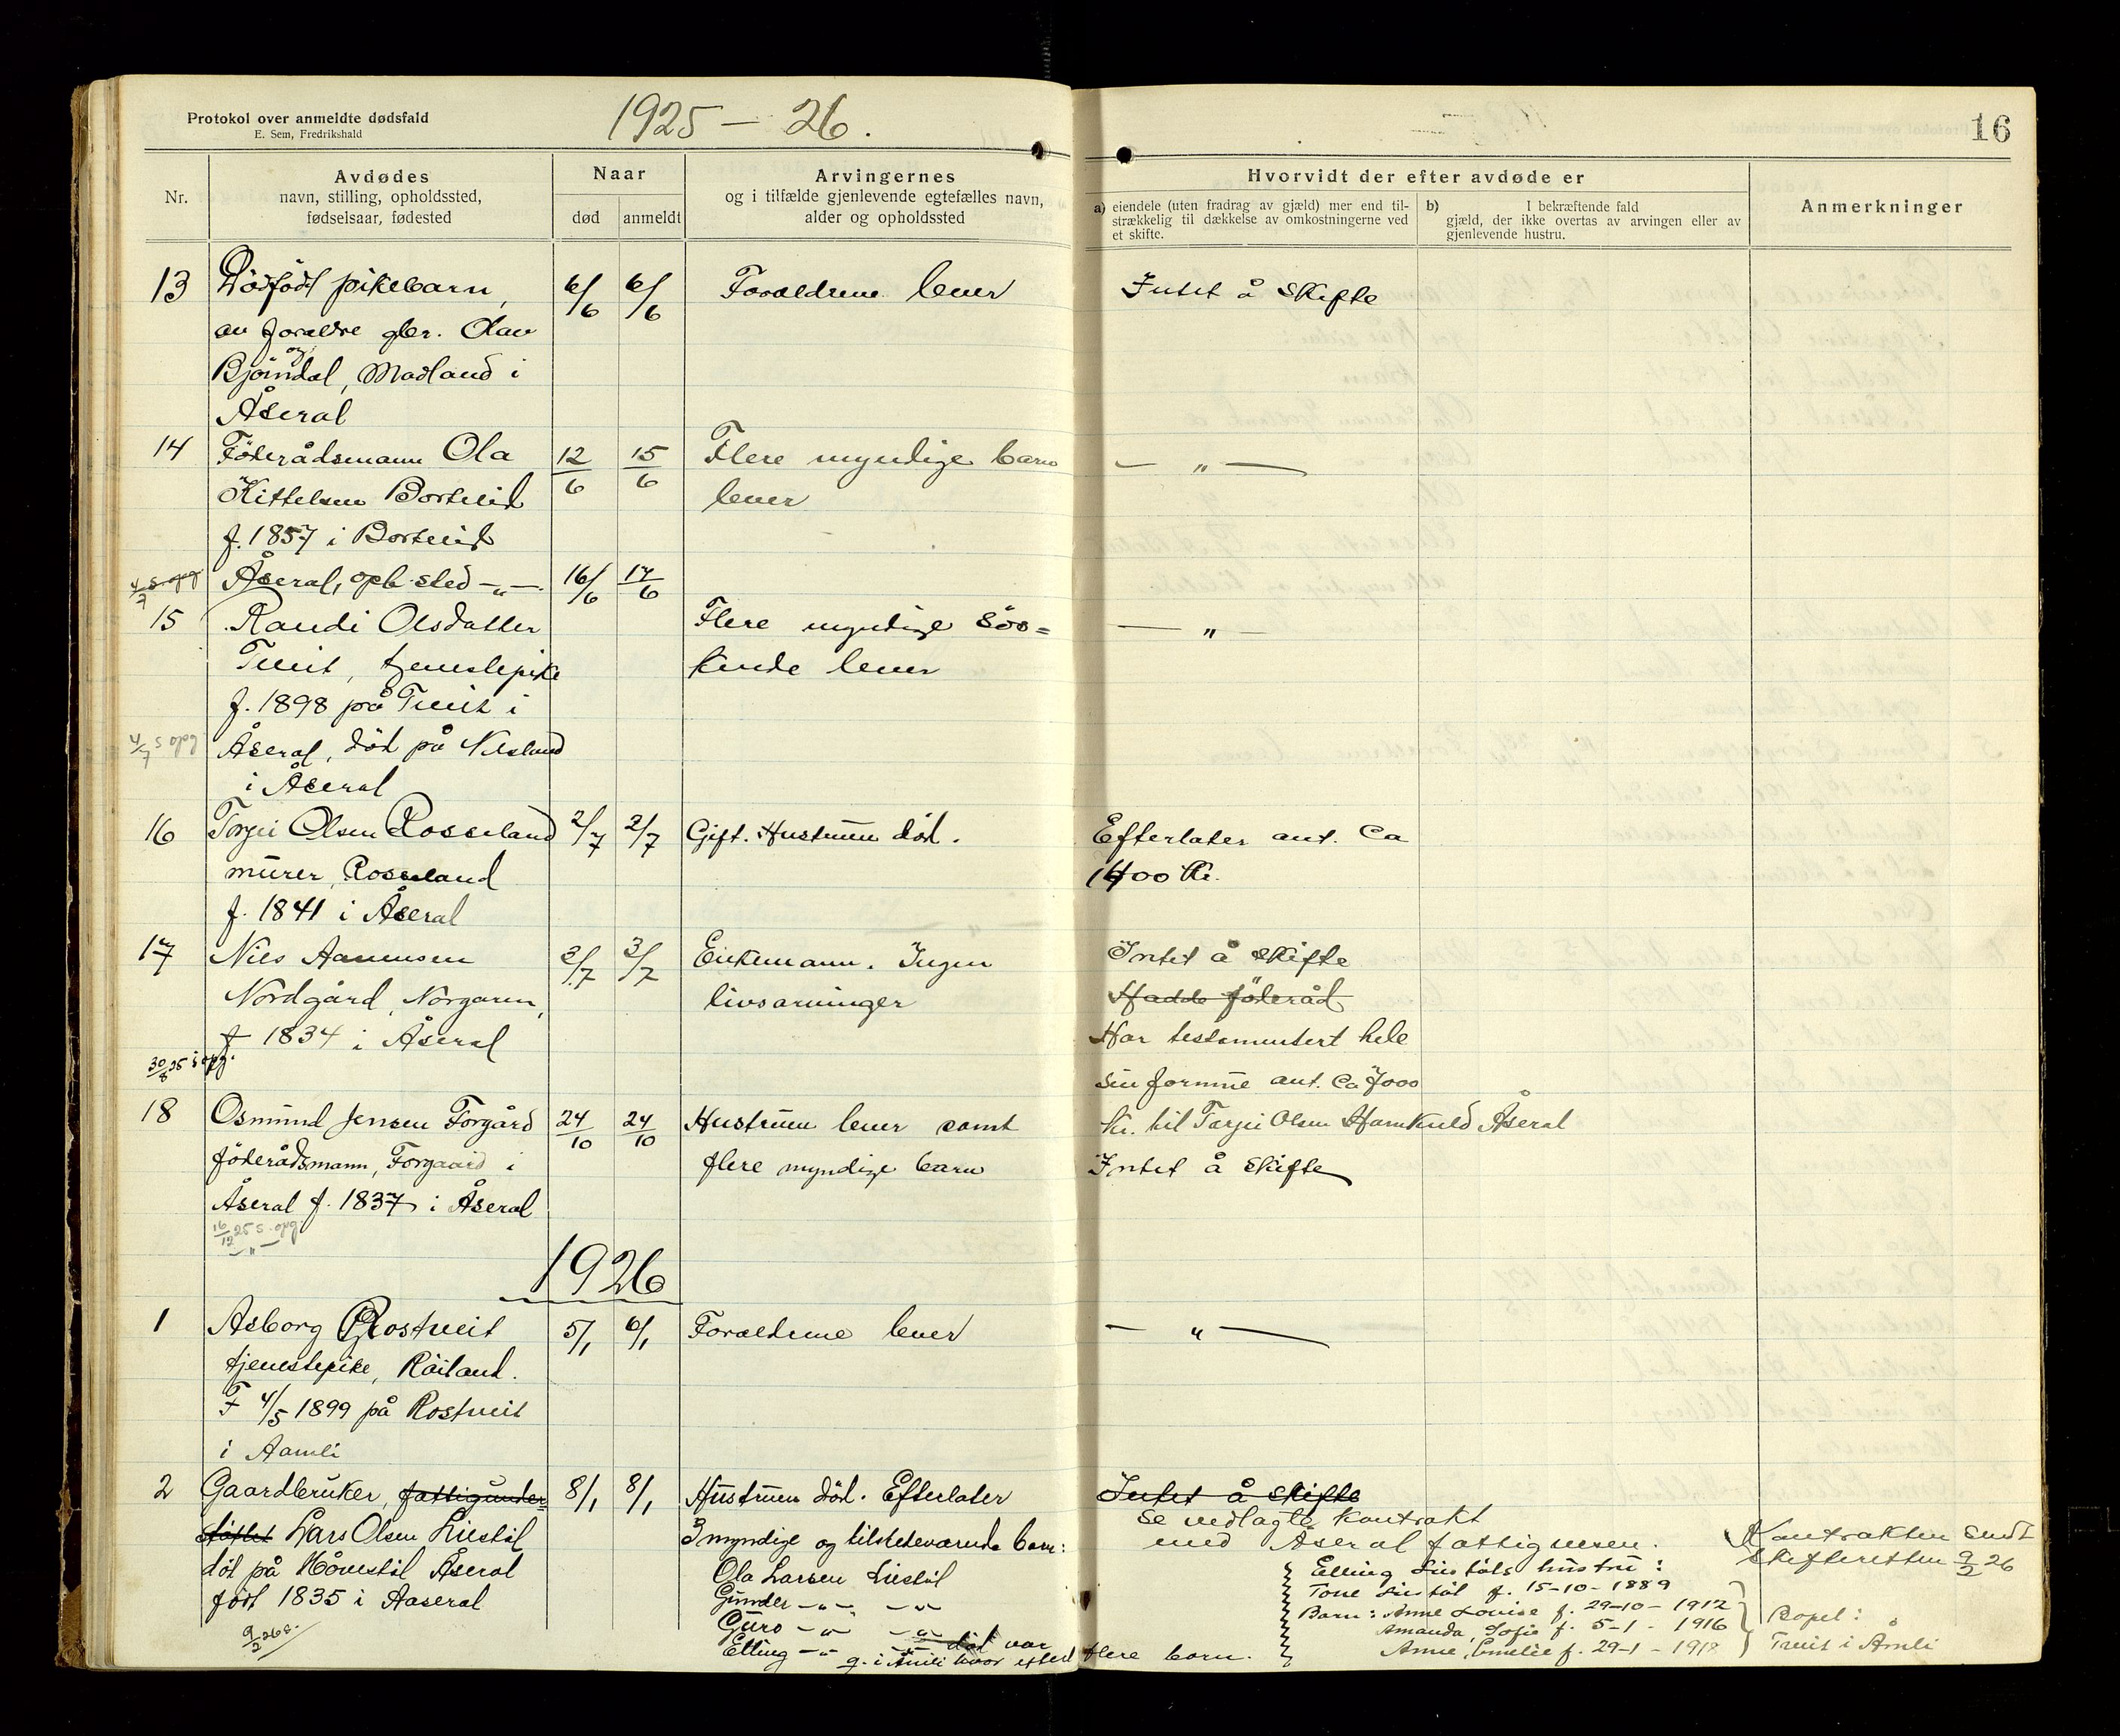 Protokol over anmeldte dødsfald
E. Sem, Fredrikshald
1925 – 26.
16
Nr.
Avdødes
navn, stilling, opholdssted,
fødselsaar, fødested
Naar
død
anmeldt
Arvingernes
og i tilfælde gjenlevende egtefælles navn,
alder og opholdssted
Hvorvidt der efter avdøde er
a) eiendele (uten fradrag av gjæld) mer end til-
strækkelig til dækkelse av omkostningerne ved
et skifte.
b) I bekræftende fald
gjæld, der ikke overtas av arvingen eller av
gjenlevende hustru.
Anmerkninger
13 Dödfödt pikebarn, 6/6 6/6 Foraeldrene lever Intet å skifte
av foraeldre gbr. Olav
og
Bjömdal, Madland i
Åseral
14 Föderådsmann Ola 12/6 15/6 Flere myndige barn – " –
Kittelsen Bortveid lever
f. 1857 i Bortveid
4/7 s opg Åseral, oph. sted – " –. 16/6 17/6
15 Randi Olsdatter Flere myndige sös= – " –
Tveit, tjenestepike kende lever
f. 1898 på Tveit i
4/7 s opg Åseral, död på Nesland
i Åseral
16 Torjei Olsen Rosseland 2/7 2/7 Gift. Hustruen död. Efterlater ant. Ca
murer, Rosseland 1400 Kr.
f. 1841 i Åseral
17 Nils Aanensen 3/7 3/7 Enkemann. Ingen Intet å skifte
Nordgård, Norgaren, livsarvinger Hadde föderåd
f 1834 i Åseral Har testamentert hele
30/8 25 s opg. sin formue ant. Ca 7000
18 Osmund Jensen Forgård 24/10 24/10 Hustruen lever samt Kr. til Torjei Olsen Hamkuld Åseral
föderådsmann, Forgaard i flere myndige barn Intet å skifte
Åseral f. 1837 i Åseral
16/12 25 s. opg
– " –
1926
1 Asborg Rostveit 5/1 6/1 Foraeldrene lever – " –
tjenestepike, Röiland.
F 4/5 1899 på Rostveit
i Aamli
2 Gaardbruker, fattigunder= 8/1 8/1 Hustruen död. Efterlater Intet å skifte
stöttet Lars Olsen Liestöl 3 myndige og tilstedevaerende barn: Se vedlagte kontrakt
död på Hönestöl Åseral Ola Larsen Liestöl med Åseral fattigvesen. Kontrakten sendt
födt 1835 i Aaseral Gunder – " – – " – skifteretten 9/2 26
9/2 26 s. Guro – " – – " –
Elling – " – – " – död var
g. i Åmli hvor efterl flere barn.
Elling Liestöls hustru:
Tone Liestöl f. 15-10-1889
Barn: Anne Lovise f. 29-10-1912 Bopel:
Amanda Sofie f. 5-1-1916 Tveit i Åmli
Anne Emelie f. 29-1-1918